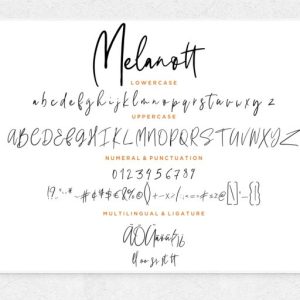 Melanott
LOWERCASE
abcdefghijklmnopqrstuvwxyz
UPPERCASE
ABCDEFGHIJKLMNOPQRSTUVWXYZ
NUMERAL & PUNCTUATION
0123456789
MULTILINGUAL & LIGATURE